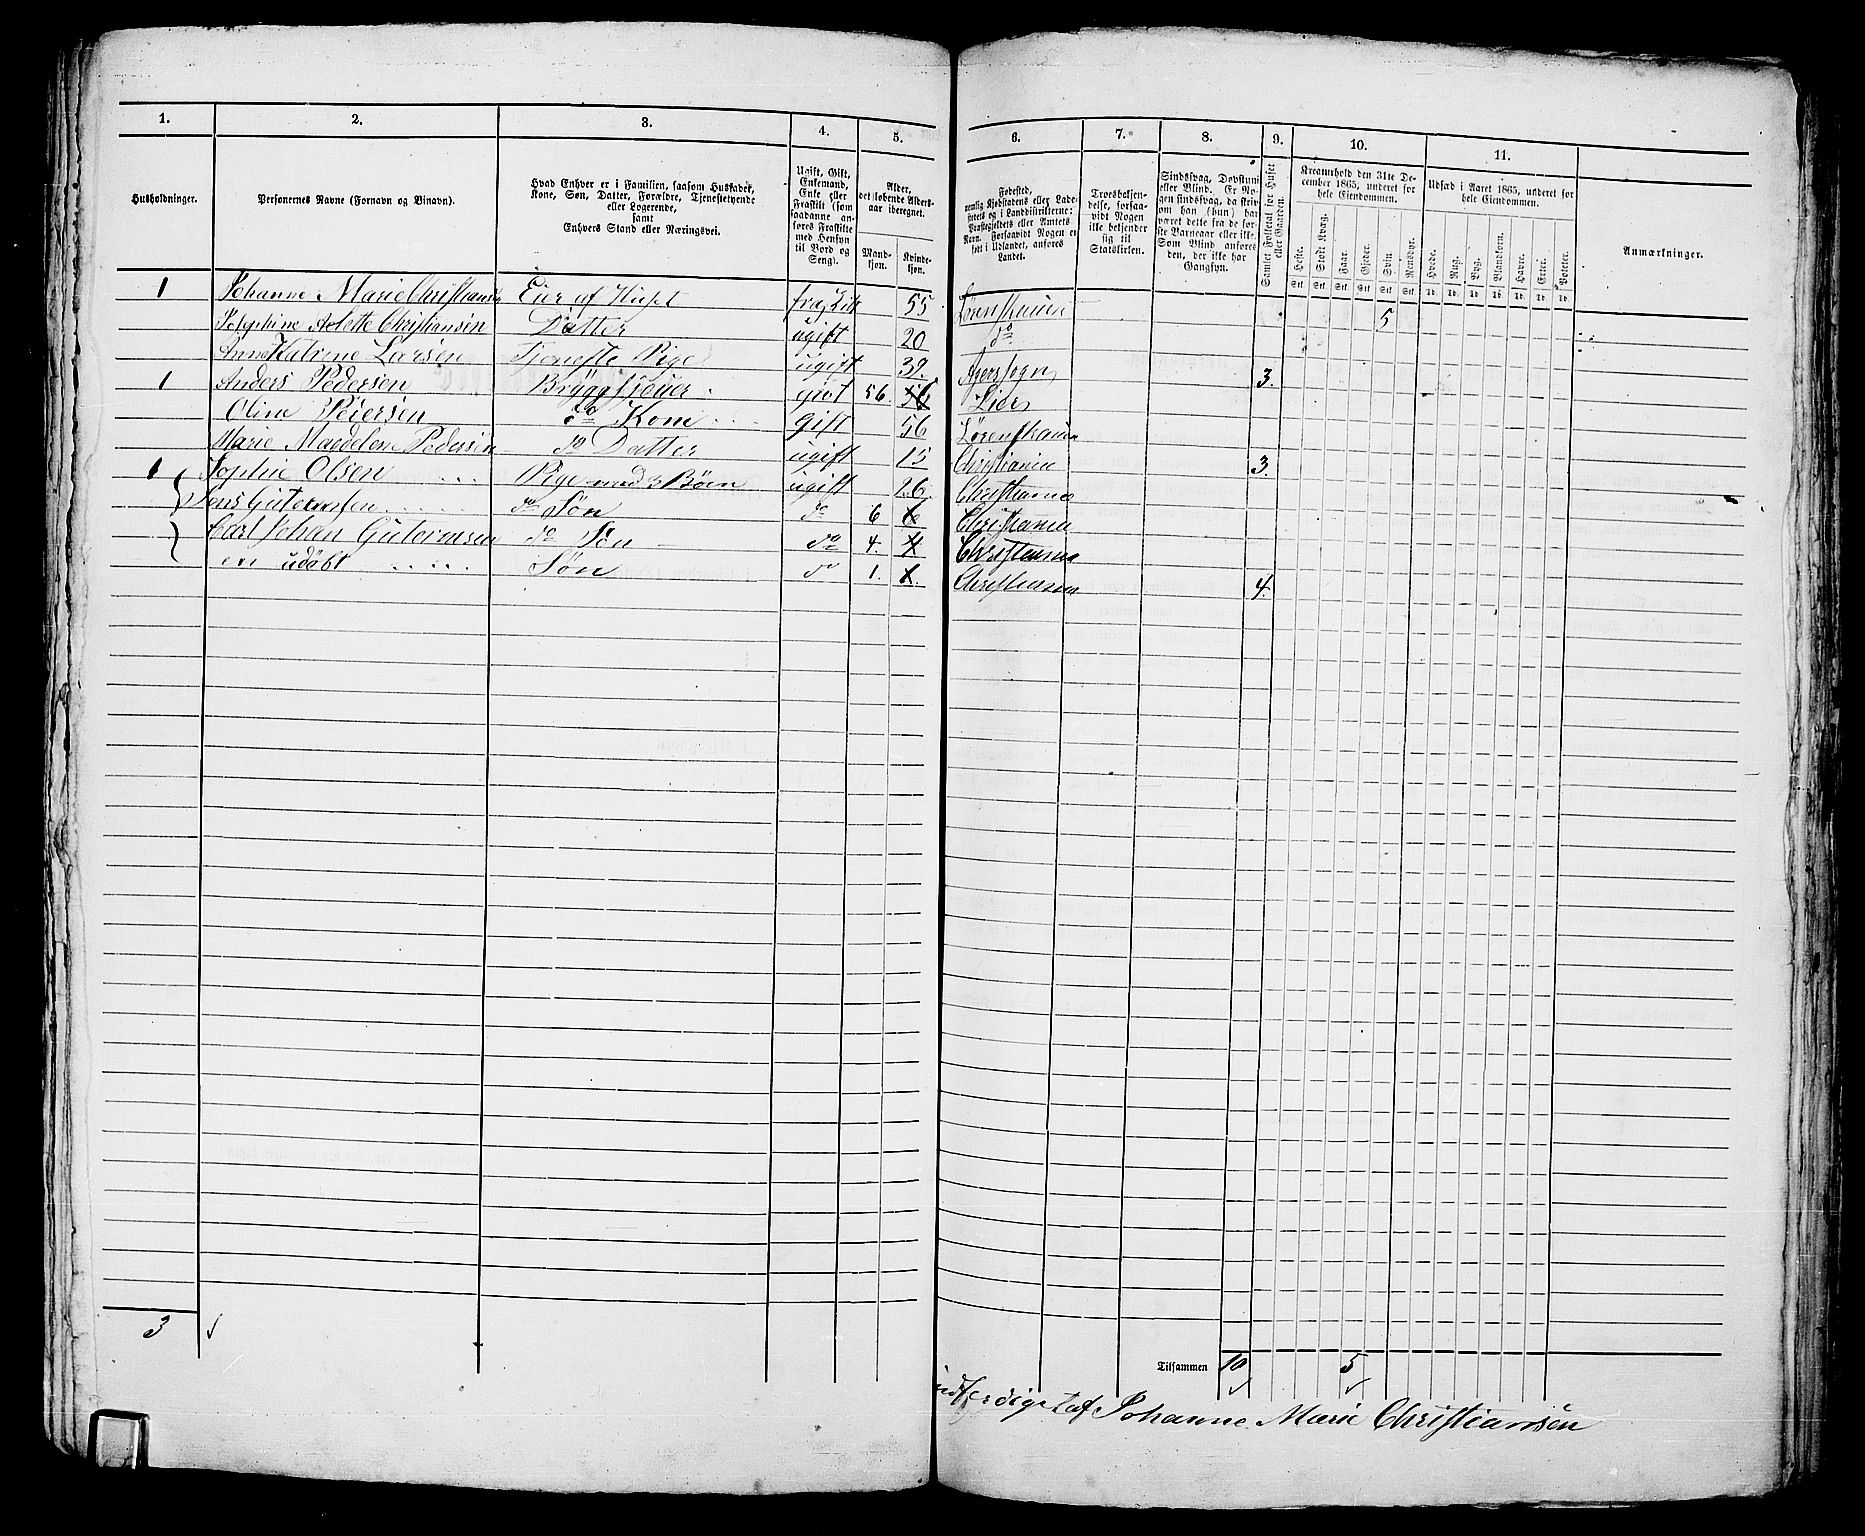 1. 2. 3. 4. 5. 6. 7. 8. 9. 10. 11.
Husholdninger.
Personernes Navne (Fornavn og Binavn).
Hvad Enhver er i Familien, saasom Husfader,
Kone, Søn, Datter, Forældre, Tjenestetyende
eller Logerende,
samt
Enhvers Stand eller Næringsvei.
Ugift, Gift,
Enkemand,
Enke eller
Fraskilt (som
saadanne an-
føres Fraskilte
med Hensyn
til Bord og
Seng).
Alder,
det løbende Alders-
aar iberegnet.
Mand-
kjøn.
Kvinde-
kjøn.
Fødested,
nemlig Kjøbstadens eller Lade-
stedets og i Landdistrikterne:
Præstegjeldets eller Amtets
Navn. Forsaavidt Nogen er
født i Udlandet, anføres
Landet.
Troesbekjen-
delse, forsaa-
vidt Nogen
ikke bekjender
sig til
Statskirken.
Sindssvag, Døvstum
eller Blind. Er No-
gen sindssvag, da skriv
om han (hun) har
været dette fra de før-
ste Barneaar eller ikke.
Som Blind anføres
den, der ikke har
Gangsyn.
Samlet Folketal for Huset
eller Gaarden.
Kreaturhold den 31te De-
cember 1865, underet for
hele Eiendommen.
Heste. Stort Kvæg. Faar. Gjeder. Svin. Rensdyr.
Stk. Stk. Stk. Stk. Stk. Stk.
Udsæd i Aaret 1865, underet for
hele Eiendommen.
Hvede. Rug. Byg. Blandkorn. Havre. Erter. Poteter.
Td. Td. Td. Td. Td. Td. Td.
Anmærkninger.
1 Johanne Marie Christiansen Eier af Huset fraskilt 55 Lørenskauen 5
Josephine Arlette Christiansen Datter ugift 20 do
Anne Katrine Larsen Tjeneste Pige ugift 39. Agersogn 3.
1 Anders Pedersen Bryggesjouer gift 56. 56 Lier
Oline Petersen do Kone gift 56 Lørenskauen
Marie Magdelene Pedersen do Datter ugift 15 Christiania 3.
1 Sophie Olsen Pige med 3 Børn ugift 26. Christiania
Jens Gutormsen do Søn do 6 6 Christiania
Carl Johan Gutormsen do Søn do 4. 4 Christiania
en udøbt Søn do 1. 1. Christiania 4.
3
Tilsammen 10 5
Johanne Marie Christiansen